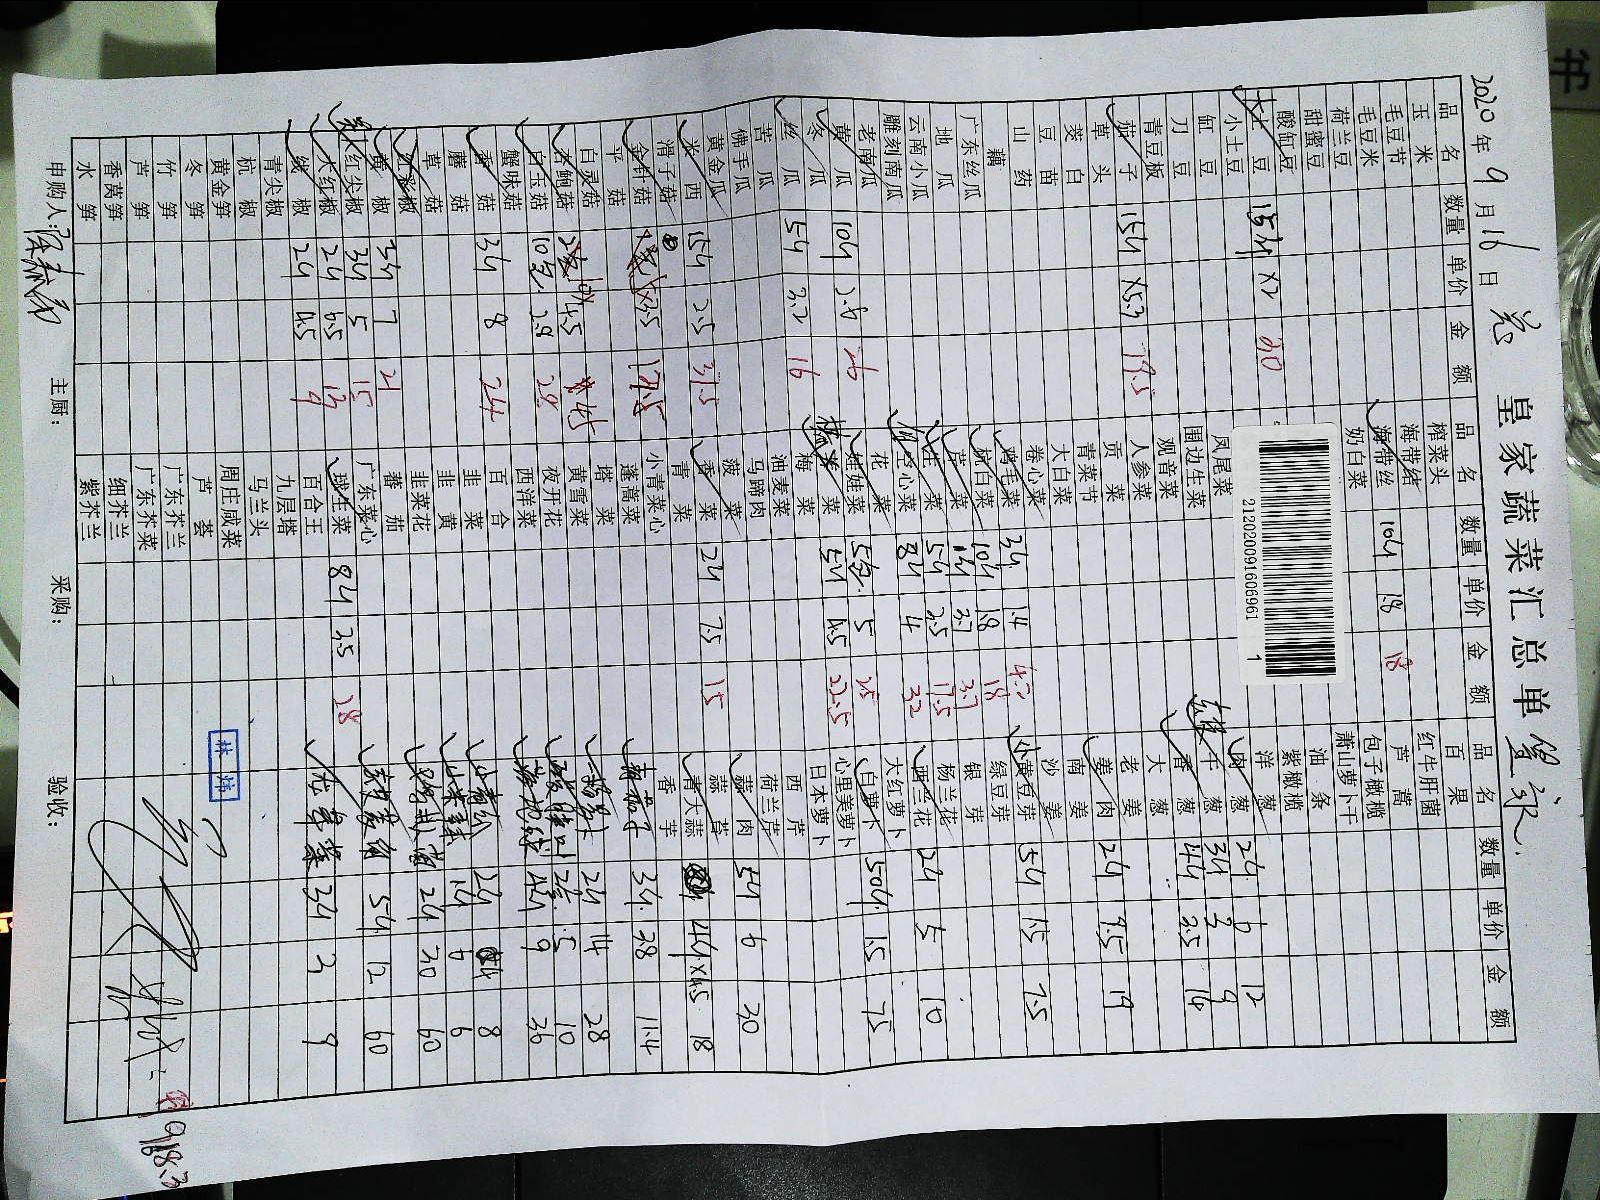 2020年9月16日
皇家蔬菜汇总单
品名 数量 单价 金额 品名 数量 单价 金额 品名 数量 单价 金额
玉米 榨菜头 百果
毛豆节 海带绪 红牛肝菌
毛豆米 海带丝 10斤 1.8 18 芦蒿
荷兰豆 奶白菜 包子橄榄
甜蜜豆 萧山萝卜干
酸缸豆 油条
大土豆 15斤 ×2 30 紫橄榄
小土豆 洋葱
缸豆 凤尾菜 肉葱 2斤 6 12
刀豆 围边生菜 干葱 3斤 3 9
青豆板 观音菜 香葱 4斤 3.5 14
茄子 15斤 ×5.3 79.5 人参菜 大葱
草头 贡菜 老姜
茭白 青菜节 姜肉 2斤 9.5 19
豆苗 大白菜 南姜
山药 卷心菜 沙姜
藕 鸡毛菜 3斤 1.4 4.2 小黄豆芽 5斤 1.5 7.5
广东丝瓜 杭白菜 10斤 1.8 18 绿豆芽
地瓜 芹菜 1斤 3.7 3.7 银芽
云南小瓜 生菜 5斤 3.5 17.5 杨兰花
雕刻南瓜 空心菜 8斤 4 32 西兰花 2斤 5 10
老南瓜 花菜 大红萝卜
黄瓜 10斤 2.6 26 娃娃菜 5包 5 25 白萝卜 50斤 1.5 75
冬瓜 米菜 5斤 4.5 22.5 心里美萝卜
丝瓜 5斤 3.2 16 梅菜 日本萝卜
苦瓜 油麦菜 西芹
佛手瓜 马蹄肉 荷兰芹
黄金瓜 菠菜 蒜肉 5斤 6 30
米西 15斤 2.5 37.5 香菜 2斤 7.5 15 蒜苔
滑子菇 青菜 青大蒜 4斤 ×4.5 18
金针菇 ×3.5 17.5 小青菜心 香芋
平菇 蓬蒿菜 3斤 38 114
白灵菇 塔菜 2斤 14 28
杏鲍菇 10斤 4.5 45 黄雪菜 2 5 10
白玉菇 10包 2.8 28 夜开花 4斤 9 36
蟹味菇 西洋菜
香菇 3斤 8 24 百合 小青 2斤 4 8
蘑菇 韭菜 1斤 6 6
草菇 韭黄 2斤 30 60
彩椒 韭菜花
黄椒 3斤 7 21 蕃茄 5斤 12 60
红尖椒 3斤 5 15 广东菜心
大红椒 2斤 6.5 13 球生菜 8斤 3.5 28 3斤 3 9
线椒 2斤 4.5 9 百合王
青尖椒 九层塔
杭椒 马兰头
黄金笋 周庄咸菜
冬笋 芦荟
竹笋 广东芥兰
芦笋 广东芥菜
香莴笋 细芥兰
水笋 紫芥兰
申购人: 主厨: 采购: 验收:
林炜
21202009160696 1
1
书